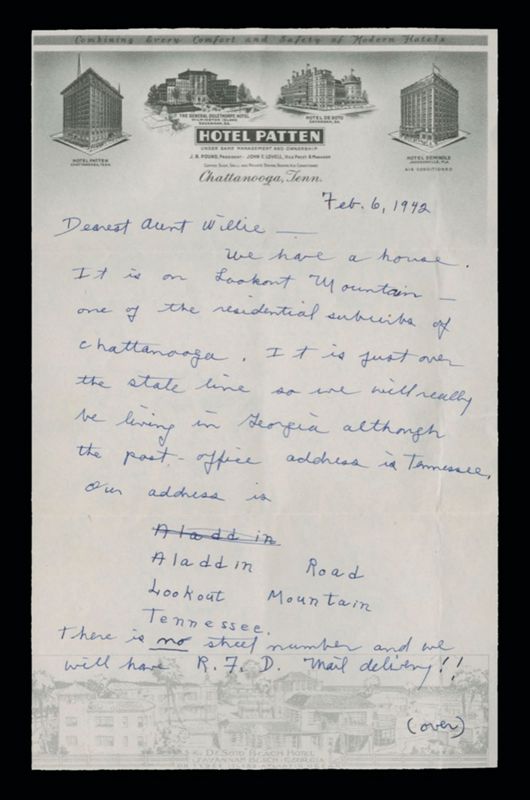 Combining Every Comfort and Safety of Modern Hotels
THE GENERAL OGLETHORPE HOTEL
WILMINGTON ISLAND
SAVANNAH, GA.
HOTEL DE SOTO
SAVANNAH, GA.
HOTEL PATTEN
CHATTANOOGA, TENN.
HOTEL PATTEN
UNDER SAME MANAGEMENT AND OWNERSHIP
J. B. POUND, PRESIDENT - JOHN E. LOVELL, VICE PREST & MANAGER
HOTEL SEMINOLE
JACKSONVILLE, FLA.
AIR CONDITIONED
Chattanooga, Tenn.
Feb. 6, 1942
Dearest Aunt Willie —
We have a house.
It is on Lookout Mountain —
one of the residential suburbs of
Chattanooga. It is just over
the state line so we will really
be living in Georgia although
the post-office address is Tennessee.
Our address is
Aladdin
Aladdin Road
Lookout Mountain
Tennessee.
There is no street number and we
will have R. F. D. Mail delivery!!
(over)
DE SOTO BEACH HOTEL
SAVANNAH BEACH, GEORGIA